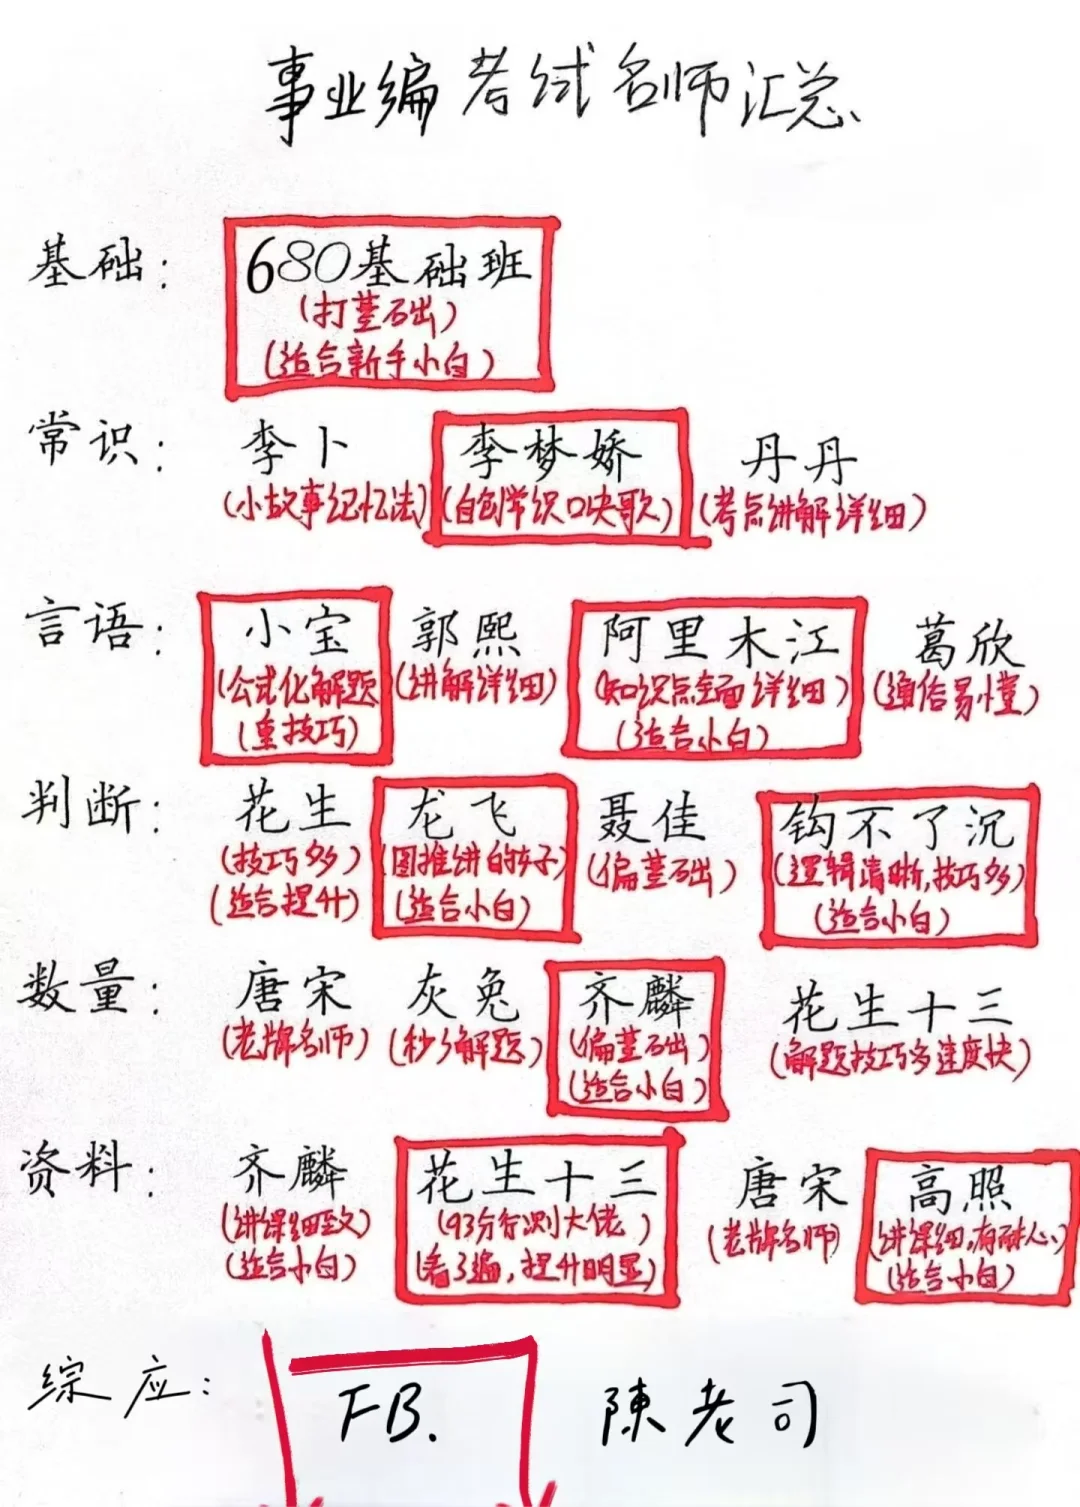 事业编考试名师汇总
基础: 680基础班
(打基础)
(适合新手小白)
常识: 李卜 李梦娇 丹丹
(小故事记忆法) (自创常识口诀歌) (考点讲解详细)
言语: 小宝 郭熙 阿里木江 葛欣
(公式化解题 (讲解详细) (知识点全面详细) (通俗易懂)
重技巧) (适合小白)
判断: 花生 龙飞 聂佳 钩不了沉
(技巧多) (图推讲的好) (偏基础) (逻辑清晰,技巧多)
(适合提升) (适合小白) (适合小白)
数量: 唐宋 灰兔 齐麟 花生十三
(老牌名师) (秒解题) (偏基础) (解题技巧多速度快)
(适合小白)
资料: 齐麟 花生十三 唐宋 高照
(讲课细致 (93分行测大佬) (老牌名师) (讲课细,有耐心)
(适合小白) (看了3遍,提升明显) (适合小白)
综应: FB. 陳老司